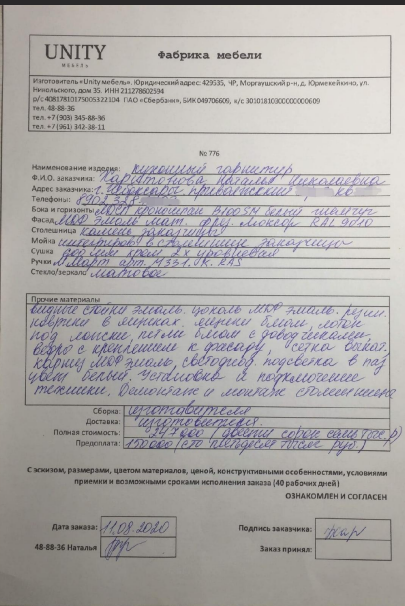 UNITY
МЕБЕЛЬ
Фабрика мебели
Изготовитель «Unity мебель». Юридический адрес: 429535, ЧР, Моргаушский р-н, д. Юрмекейкино, ул.
Никольского, дом 35. ИНН 211278602594
р/с 40817810175005322104 ПАО «Сбербанк», БИК 049706609, к/с 30101810300000000609
тел. 48-88-36
тел. +7 (903) 345-88-96
тел. +7 (961) 342-38-11
№ 776
Наименование изделия: кухонный гарнитур
Ф.И.О. заказчика: Харитонова Наталья Николаевна
Адрес заказчика: г. Чебоксары кв
Телефоны: 8902 328
Бока и горизонты ЛДСП кроношпан белый
Фасад МДФ эмаль мат. фрез. Луксор RAL 9010
Столешница камень заказчика
Мойка интегрир. в столешницу заказчица
Сушка 2х уровневая
Ручки арт. М331.
Стекло/зеркало матовое
Прочие материалы
видные стойки эмаль. цоколь МДФ эмаль.
в ящиках. ящики блюм, лоток
под мойки, петли блюм с доводчиками,
ведро с креплением к фасаду, сетка выкат.
карниз МДФ эмаль, светодиод. подсветка в паз
цвет белый. Установка и подключение
техники. Демонтаж и монтаж столешницы
Сборка: изготовителя
Доставка: изготовителя.
Полная стоимость: 247 000 (двести сорок семь тыс. р)
Предоплата: 150 000 (сто пятьдесят тысяч руб)
С эскизом, размерами, цветом материалов, ценой, конструктивными особенностями, условиями
приемки и возможными сроками исполнения заказа (40 рабочих дней)
ОЗНАКОМЛЕН И СОГЛАСЕН
Дата заказа: 11.08.2020 Подпись заказчика:
48-88-36 Наталья Заказ принял: